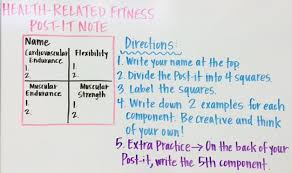 HEALTH-RELATED FITNESS
POST-IT NOTE
Name
Cardiovascular
Endurance
1.
2.
Flexibility
1.
2.
Muscular
Endurance
1.
2.
Muscular
Strength
1.
2.
Directions:
1. Write your name at the top
2. Divide the Post-it into 4 squares.
3. Label the squares.
4. Write down 2 examples for each
component. Be creative and think
of your own!
5. Extra Practice → On the back of your
Post-it, write the 5th component.